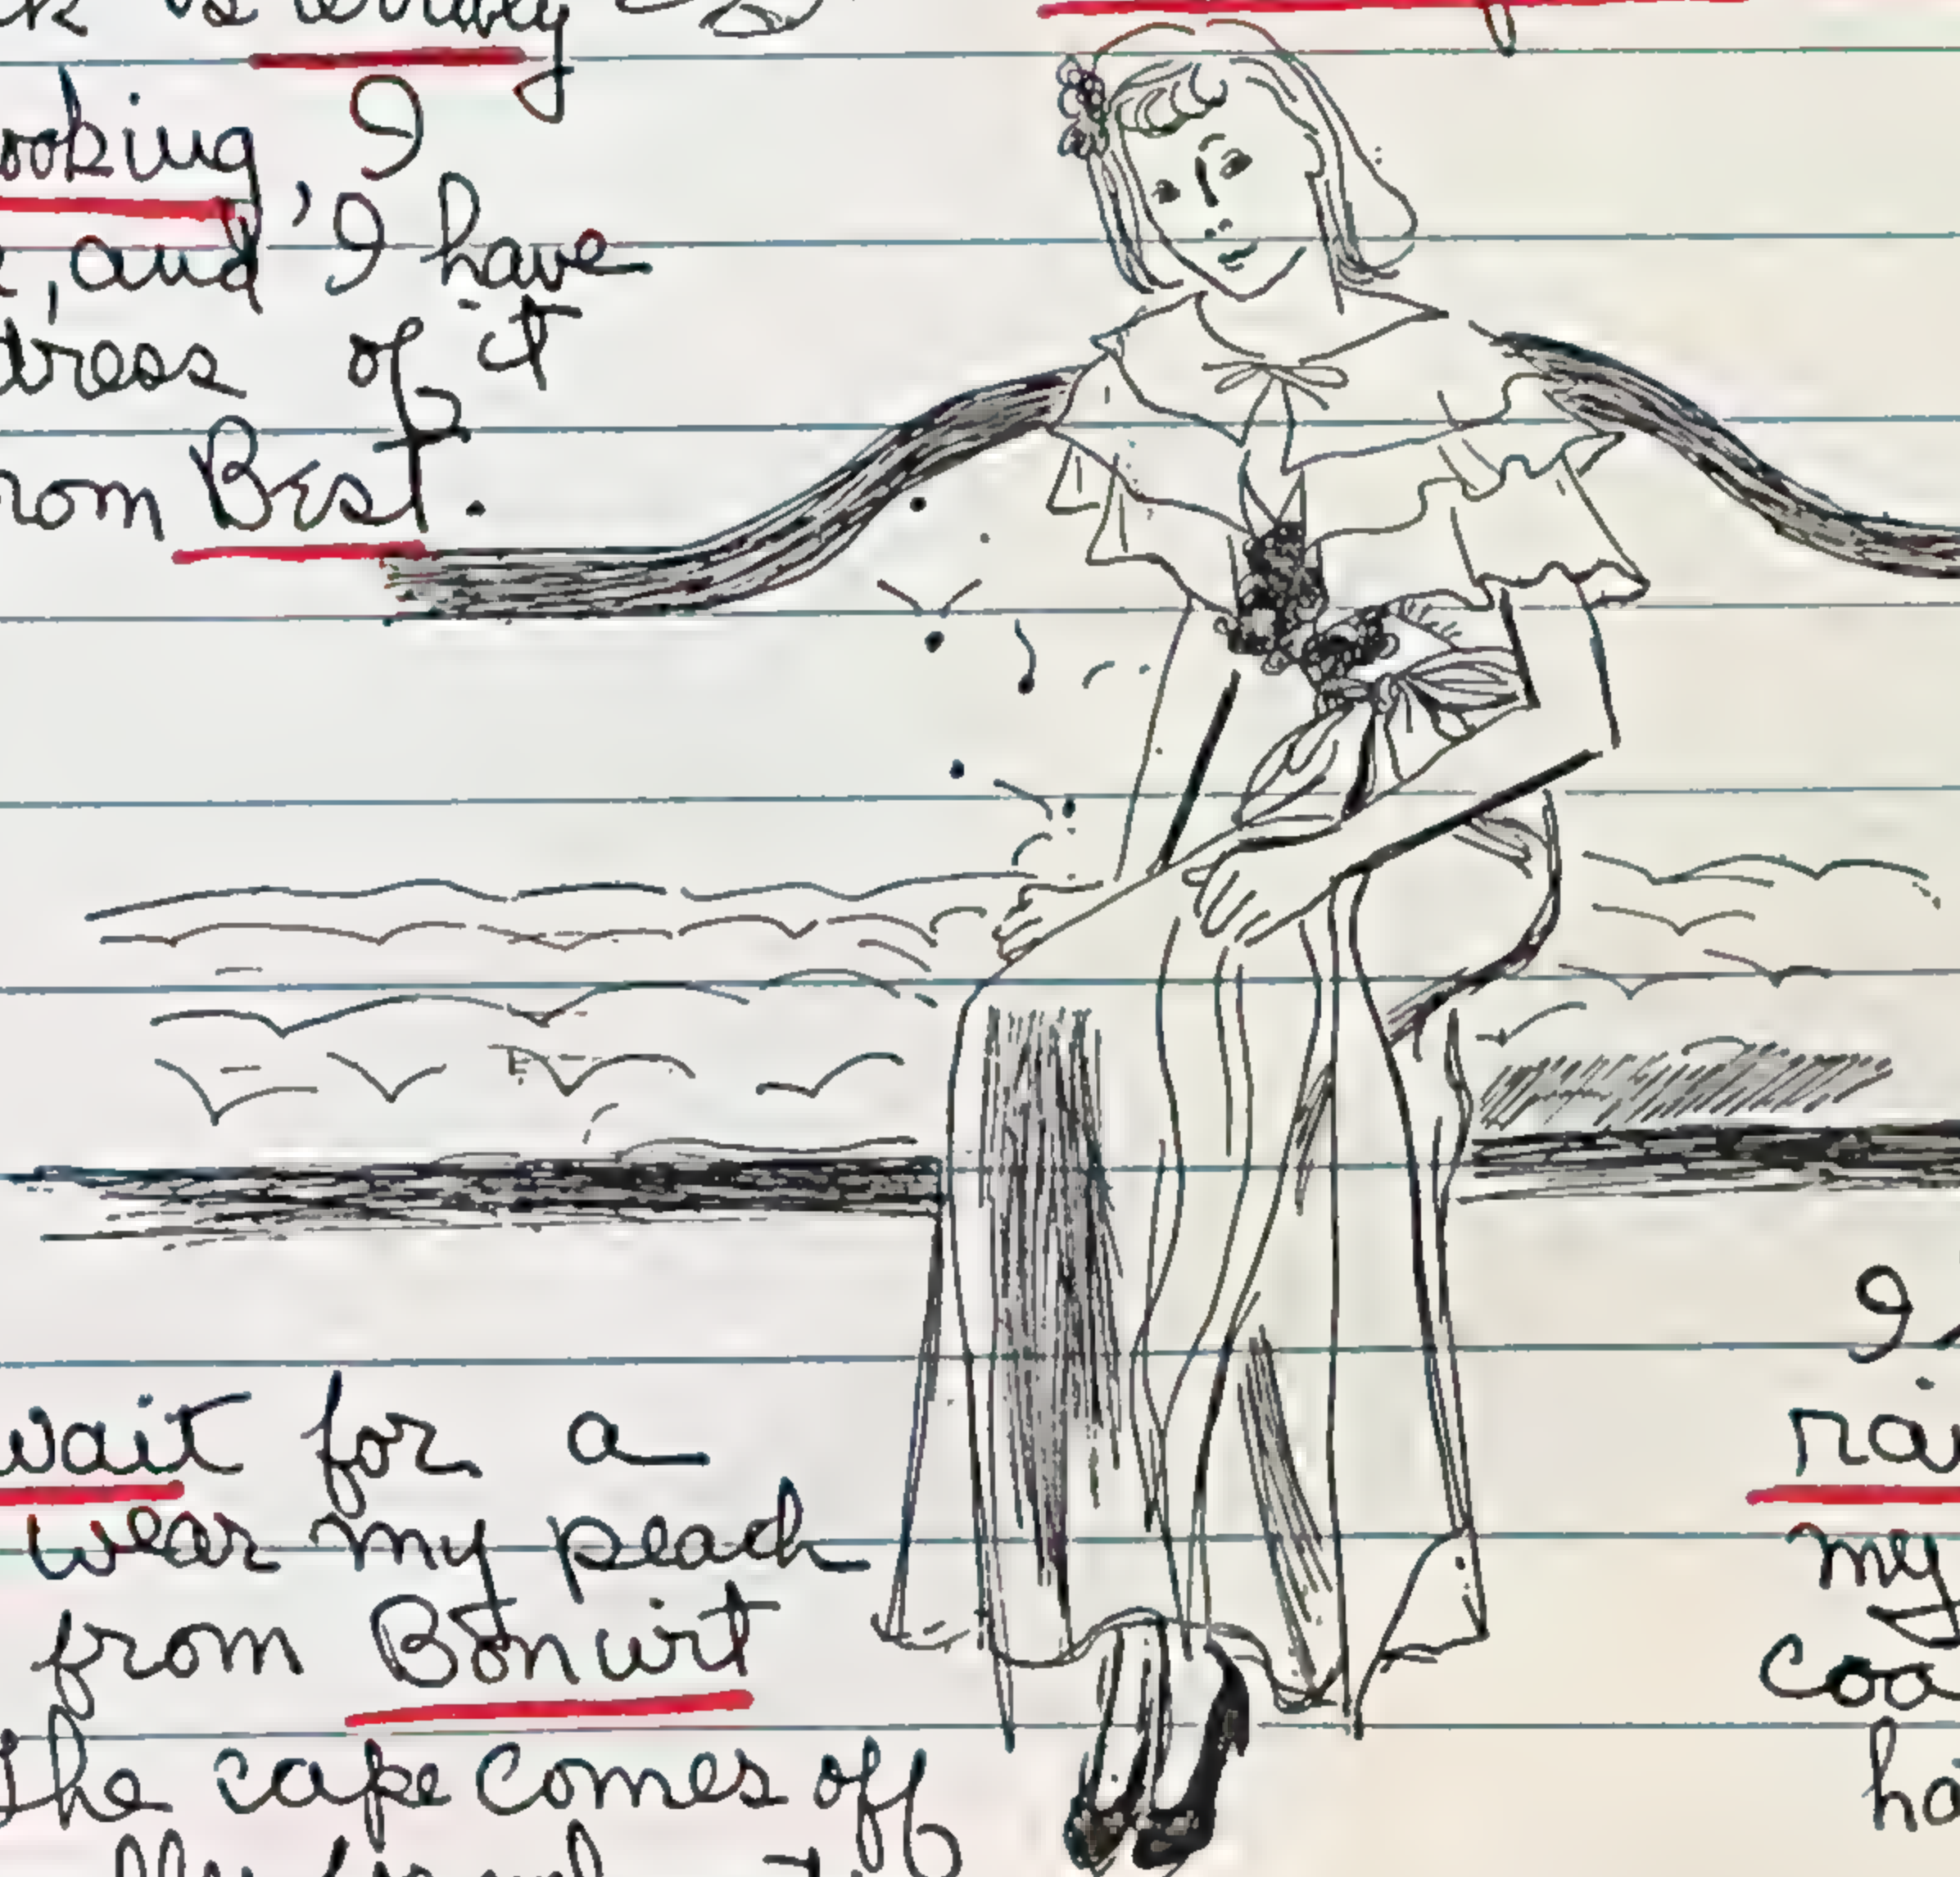 is terribly
ooking I
, and I have
dress of it
rom Best.
wait for a
wear my peach
from Bonwit
The cape comes off
I
rai
my
coa
ha